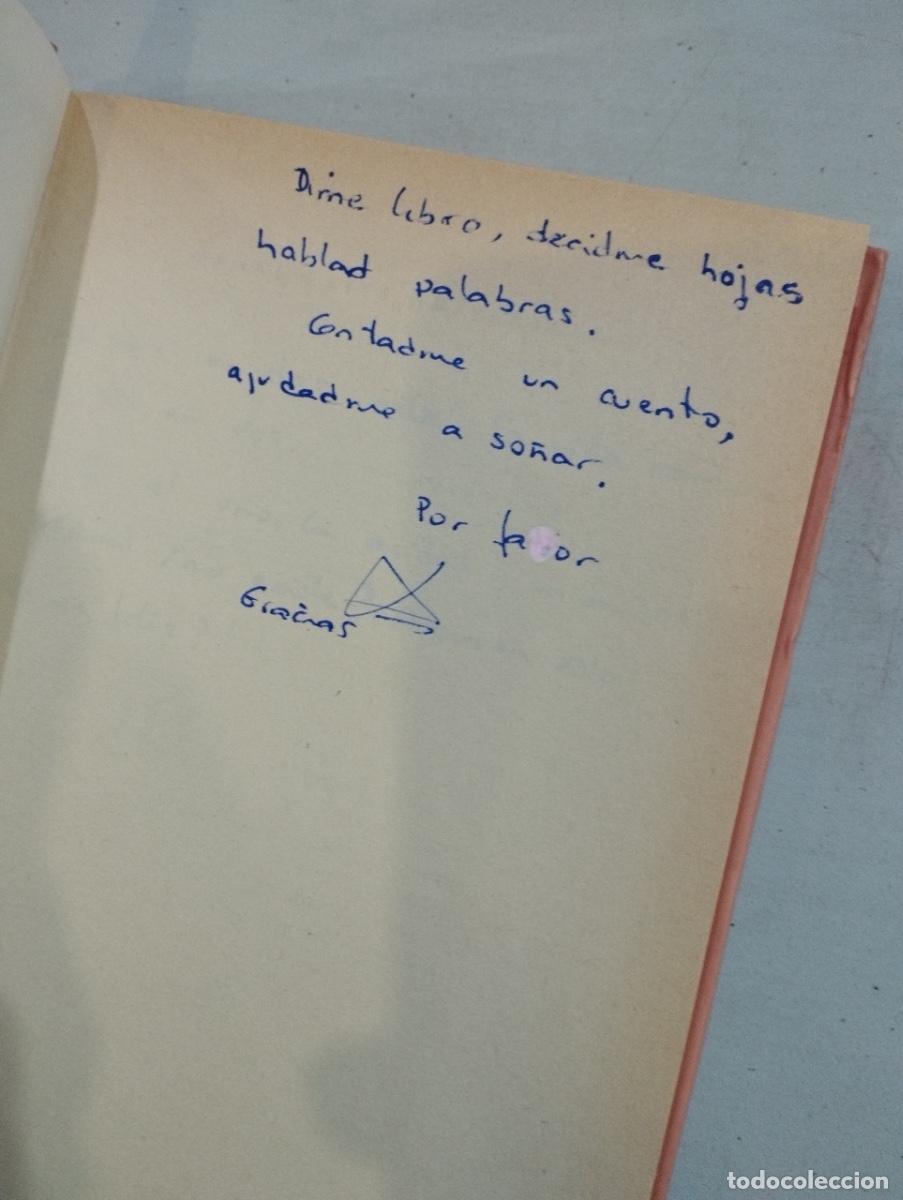 Dime libro, decidme hojas
hablad palabras.
Contadme un cuento,
ayudadme a soñar.
Por favor
Gracias
todocoleccion